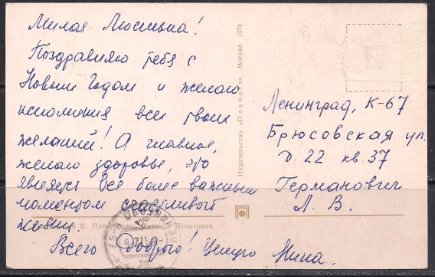 Милая Люсинька!
Поздравляю тебя с
Новым Годом и желаю
исполнения всех твоих
желаний! А главное,
желаю здоровье, это
является все более важным
моментом счастливой
жизни
Всего доброго! Целую Нина.
Издательство «Планета» Москва 1970
Ленинград, К-67
Брюсовская ул.
д. 22 кв. 37
Германович
Л. В.